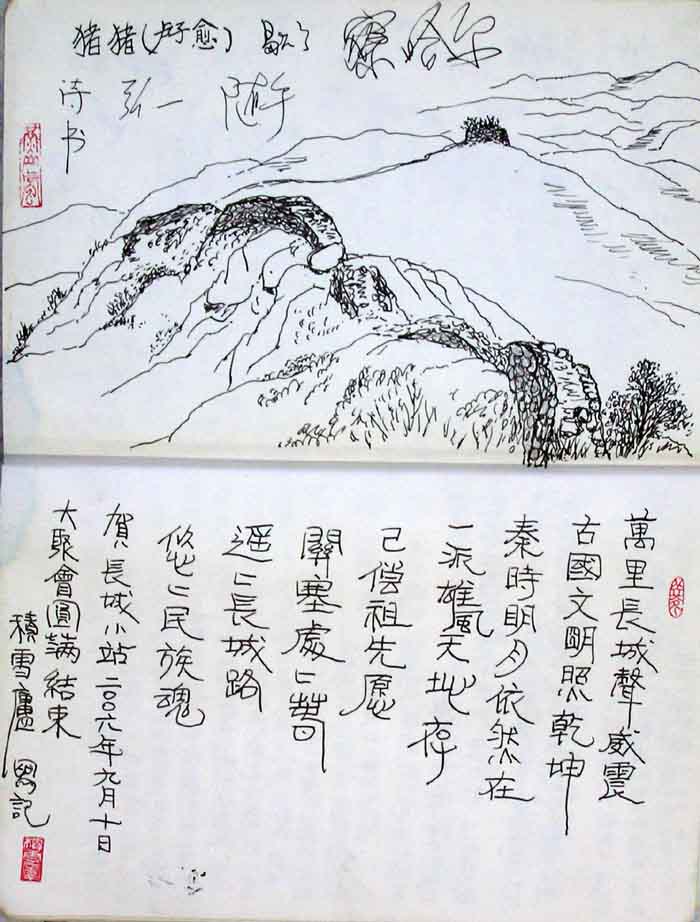 猪猪
察哈尔
诗书
弘一
萬里長城聲威震
古國文明照乾坤
秦時明月依然在
一派雄風天地存
已偿祖先愿
關塞處〻
遥〻長城路
悠〻民族魂
賀長城小站二〇〇六年九月十日
大聚會圓满結束
積雪廬 記